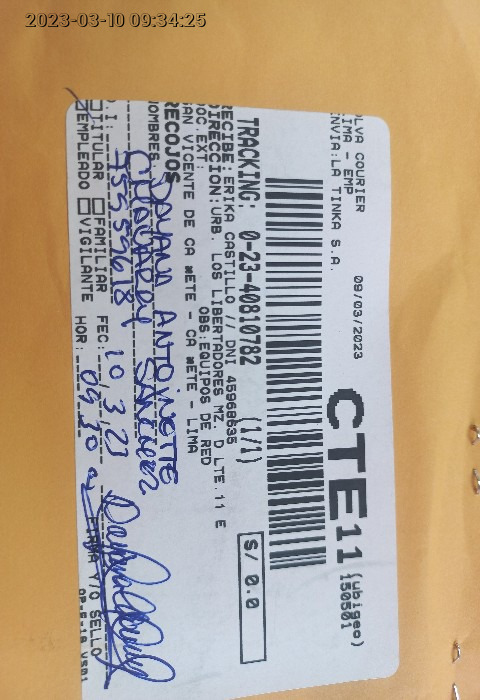 2023-03-10 09:34:25
OLVA COURIER
LIMA - EMP
ENVIA:LA TINKA S.A.
09/03/2023
CTE11
(ubigeo)
150501
TRACKING: 0-23-40810782 (1/1)
S/ 0.0
RECIBE:ERIKA CASTILLO // DNI 45968635
DIRECCION:URB. LOS LIBERTADORES MZ. D LTE.11 E
DOC.EXT: OBS:EQUIPOS DE RED
SAN VICENTE DE CAÑETE - CAÑETE - LIMA
RECOJOS
NOMBRES: ANTOINETTE
D.I: FEC: 10 3 23
TITULAR FAMILIAR
EMPLEADO VIGILANTE HOR: 09 30 a
FIRMA Y/O SELLO